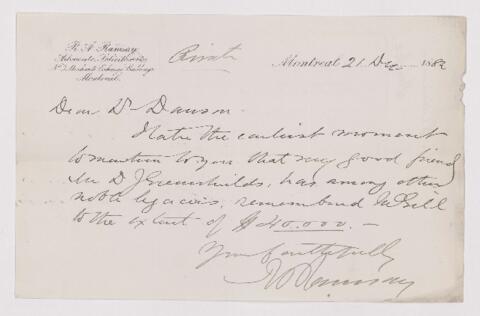 R. A. Ramsay
Advocate, Solicitor &c.
Merchants Exchange Buildings
Montreal.
Private
Montreal 21 Dec 1882
Dear Dr Dawson
I take the earliest moment
to mention to you that my good friend
Mr D J Greenshields, has among other
noble legacies, remembered McGill
to the extent of $40,000.—
Yours faithfully
R A Ramsay